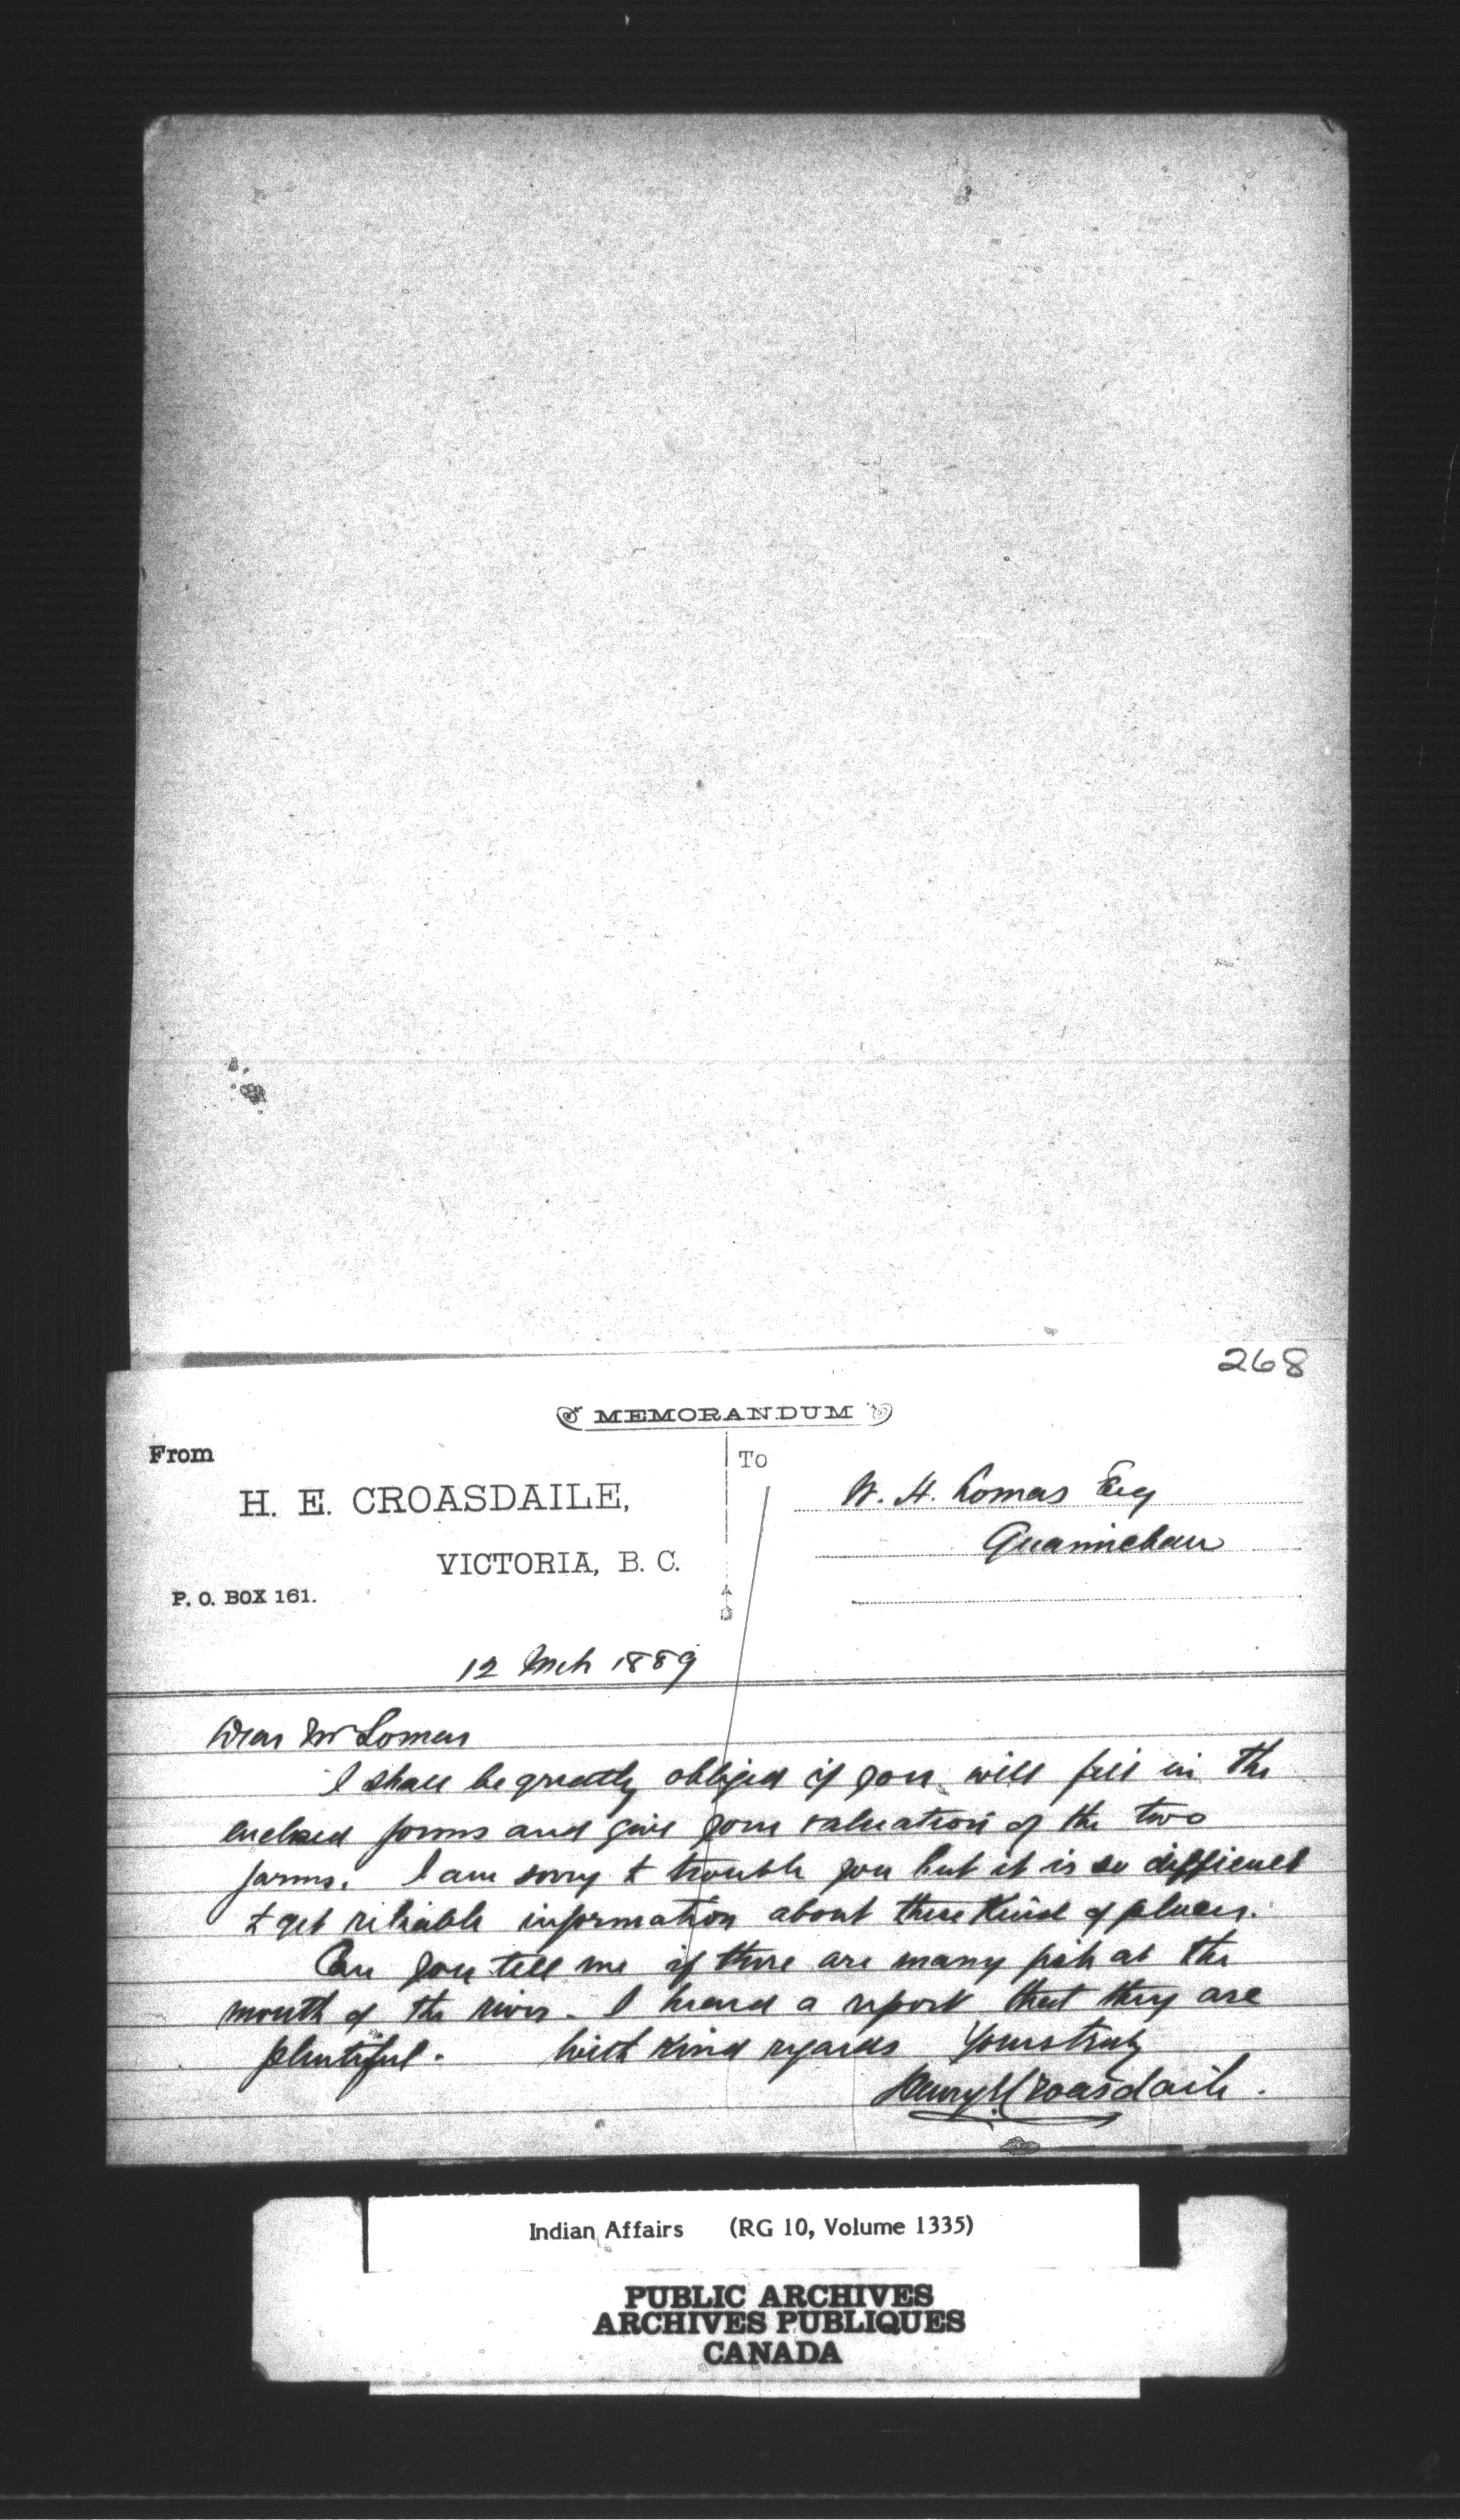 268
MEMORANDUM
From
H. E. CROASDAILE,
VICTORIA, B. C.
P. O. BOX 161.
To
W. H. Lomas Esq
Quamichan
12 Mch 1889
Dear Mr Lomas
I shall be greatly obliged if you will fill in the
enclosed forms and give your valuation of the two
farms. I am sorry to trouble you but it is so difficult
to get reliable information about these kind of places.
Can you tell me if there are many fish at the
mouth of the river. I heard a report that they are
plentiful. With kind regards Yours truly
Henry Croasdaile.
Indian Affairs (RG 10, Volume 1335)
PUBLIC ARCHIVES
ARCHIVES PUBLIQUES
CANADA